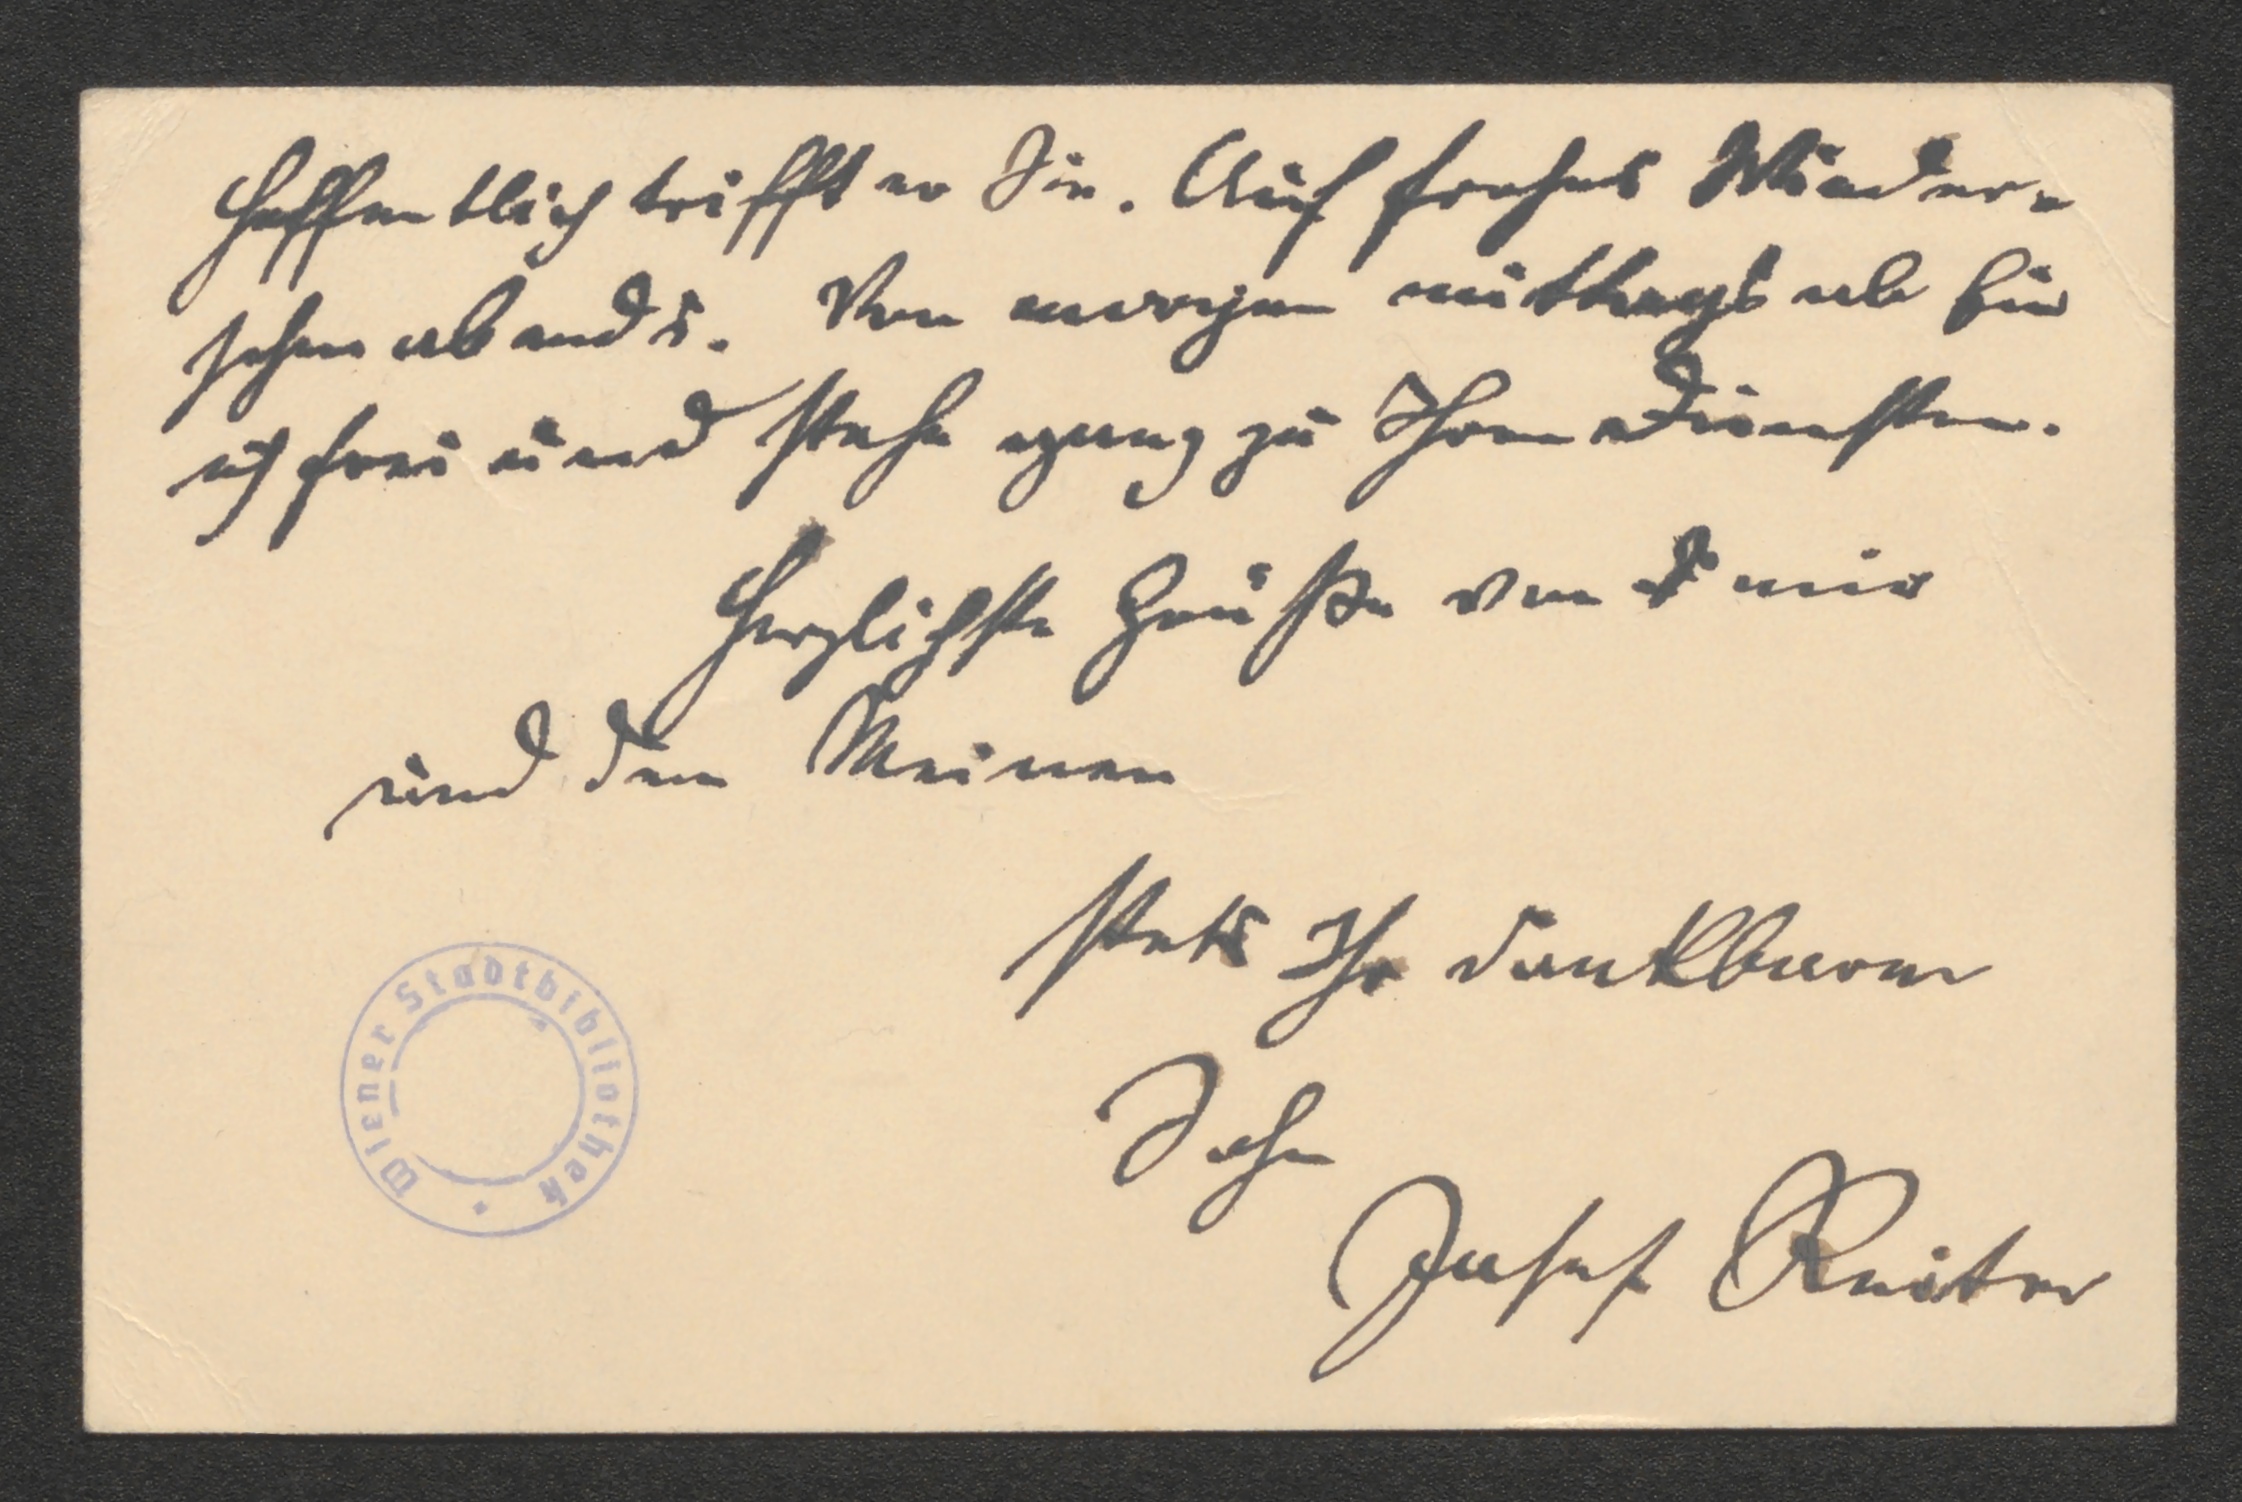 Hoffentlich trifft er Sie. Auf frohes Wieder-
sehen abends. Von morgen mittags ab bin
ich frei und stehe ganz zu Ihren Diensten.
Herzlichste Grüße von mir
und den Meinen
stets Ihr dankbarer
Josef Reiter
Wiener Stadtbibliothek